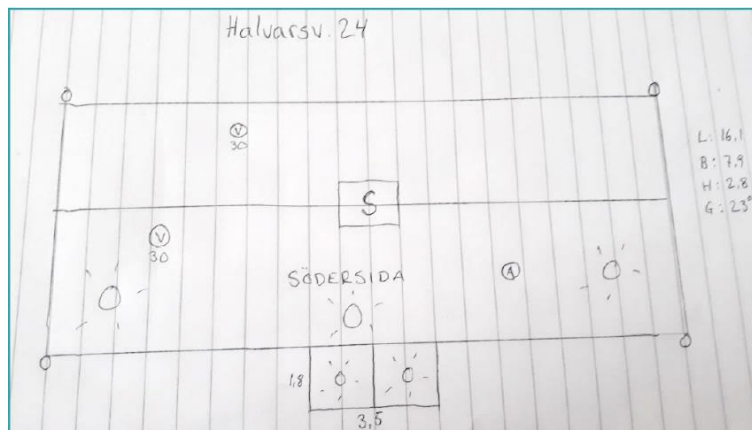 Halvarsv. 24
V
30
L: 16,1
B: 7,9
H: 2,8
G: 23°
S
V
30
SÖDERSIDA
A
1,8
3,5